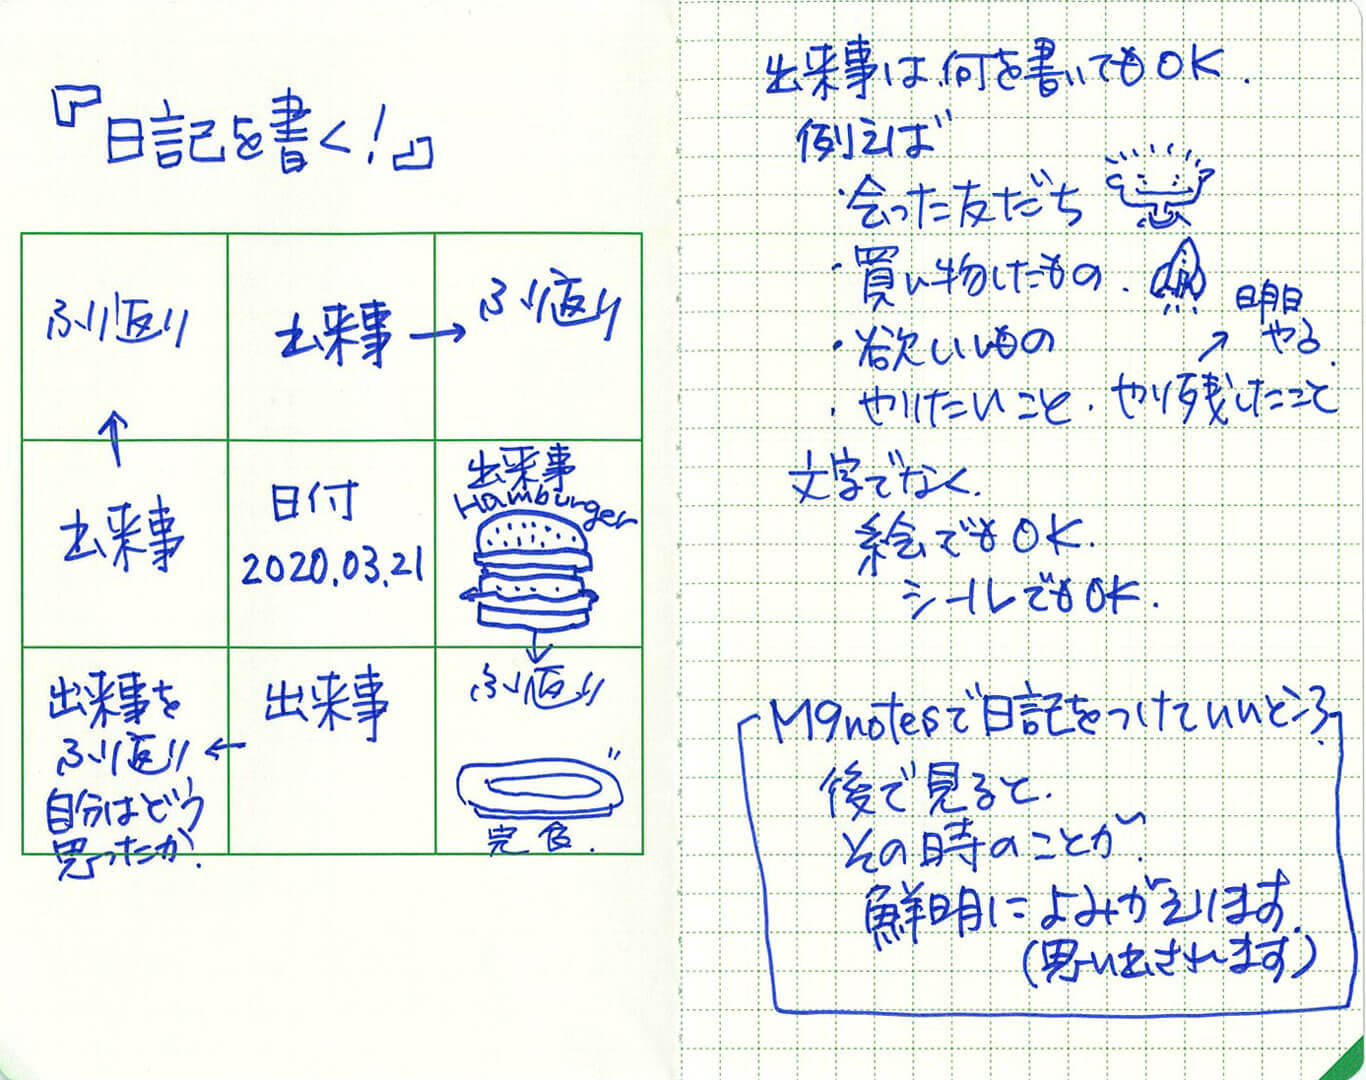 『日記を書く!』
ふり返り
出来事
→
ふり返り
↑
出来事
日付
2020.03.21
出来事
Hamburger
出来事を
ふり返り
自分はどう
思ったか.
←
出来事
ふり返り
完食.
出来事は何を書いてもOK.
例えば
・会った友だち
・買い物したもの.
・欲しいもの
・やりたいこと.やり残したこと
↗
明日
やる.
文字でなく.
絵でもOK.
シールでもOK.
M9notesで日記をつけていいところ.
後で見ると.
その時のことが.
鮮明によみがえります.
(思い出されます)